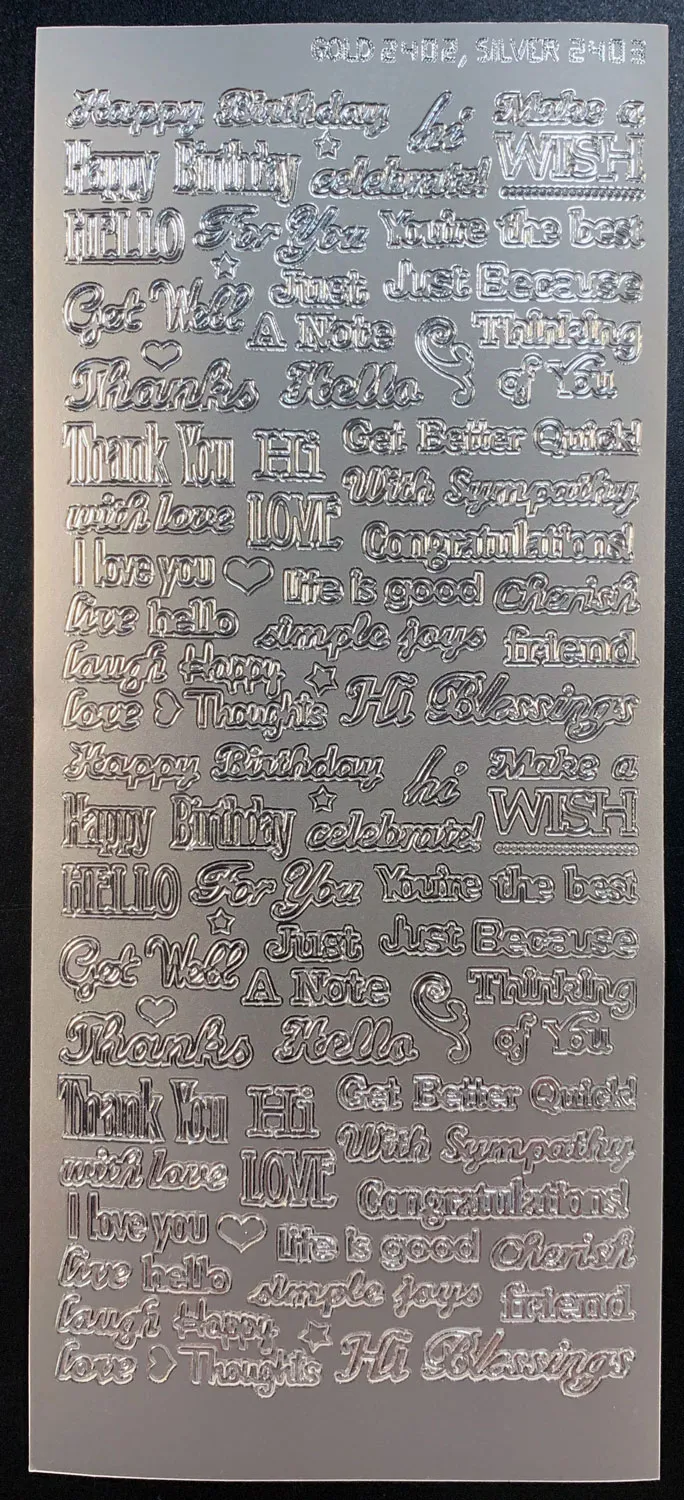 GOLD 2402, SILVER 2403
Happy Birthday hi Make a
Happy Birthday celebrate! WISH
HELLO For You You're the best
Get Well Just Just Because
A Note Thinking
Thanks Hello of You
Thank You Hi Get Better Quick!
With Sympathy
with love LOVE Congratulations!
I love you life is good Cherish
live hello simple joys friend
laugh Happy
love Thoughts Hi Blessings
Happy Birthday hi Make a
Happy Birthday celebrate! WISH
HELLO For You You're the best
Get Well Just Just Because
A Note Thinking
Thanks Hello of You
Thank You Hi Get Better Quick!
With Sympathy
with love LOVE Congratulations!
I love you life is good Cherish
live hello simple joys friend
laugh Happy
love Thoughts Hi Blessings